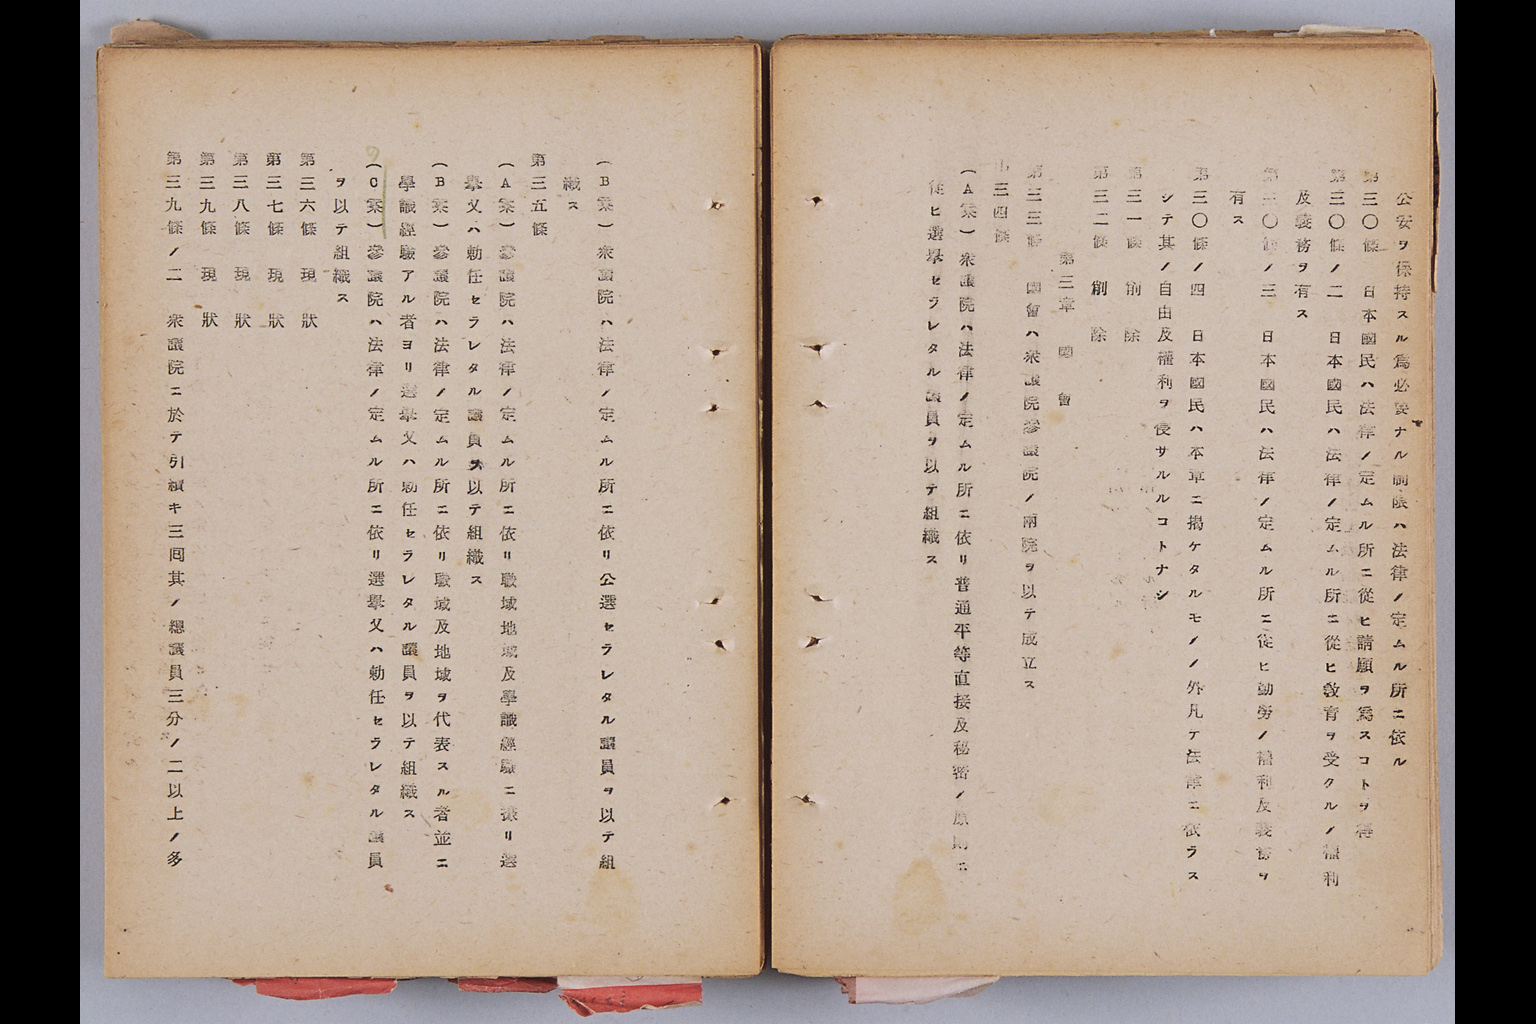 公安ヲ保持スル爲必要ナル制限ハ法律ノ定ムル所ニ依ル
第三〇條　日本國民ハ法律ノ定ムル所ニ從ヒ請願ヲ爲スコトヲ得
第三〇條ノ二　日本國民ハ法律ノ定ムル所ニ從ヒ敎育ヲ受クルノ權利
及義務ヲ有ス
第三〇條ノ三　日本國民ハ法律ノ定ムル所ニ從ヒ勤勞ノ權利及義務ヲ
有ス
第三〇條ノ四　日本國民ハ本章ニ揭ケタルモノノ外凡テ法律ニ依ラス
シテ其ノ自由及權利ヲ侵サルルコトナシ
第三一條　削　除
第三二條　削　除
第三章　國　會
第三三條　國會ハ衆議院參議院ノ兩院ヲ以テ成立ス
第三四條
(A案)衆議院ハ法律ノ定ムル所ニ依リ普通平等直接及秘密ノ原則ニ
從ヒ選擧セラレタル議員ヲ以テ組織ス
(B案)衆議院ハ法律ノ定ムル所ニ依リ公選セラレタル議員ヲ以テ組
織ス
第三五條
(A案)參議院ハ法律ノ定ムル所ニ依リ職域地域及學識經驗ニ據リ選
擧又ハ勅任セラレタル議員ヲ以テ組織ス
(B案)參議院ハ法律ノ定ムル所ニ依リ職域及地域ヲ代表スル者並ニ
學識經驗アル者ヨリ選擧又ハ勅任セラレタル議員ヲ以テ組織ス
(C案)參議院ハ法律ノ定ムル所ニ依リ選擧又ハ勅任セラレタル議員
ヲ以テ組織ス
第三六條　現　狀
第三七條　現　狀
第三八條　現　狀
第三九條　現　狀
第三九條ノ二　衆議院ニ於テ引續キ三囘其ノ總議員三分ノ二以上ノ多